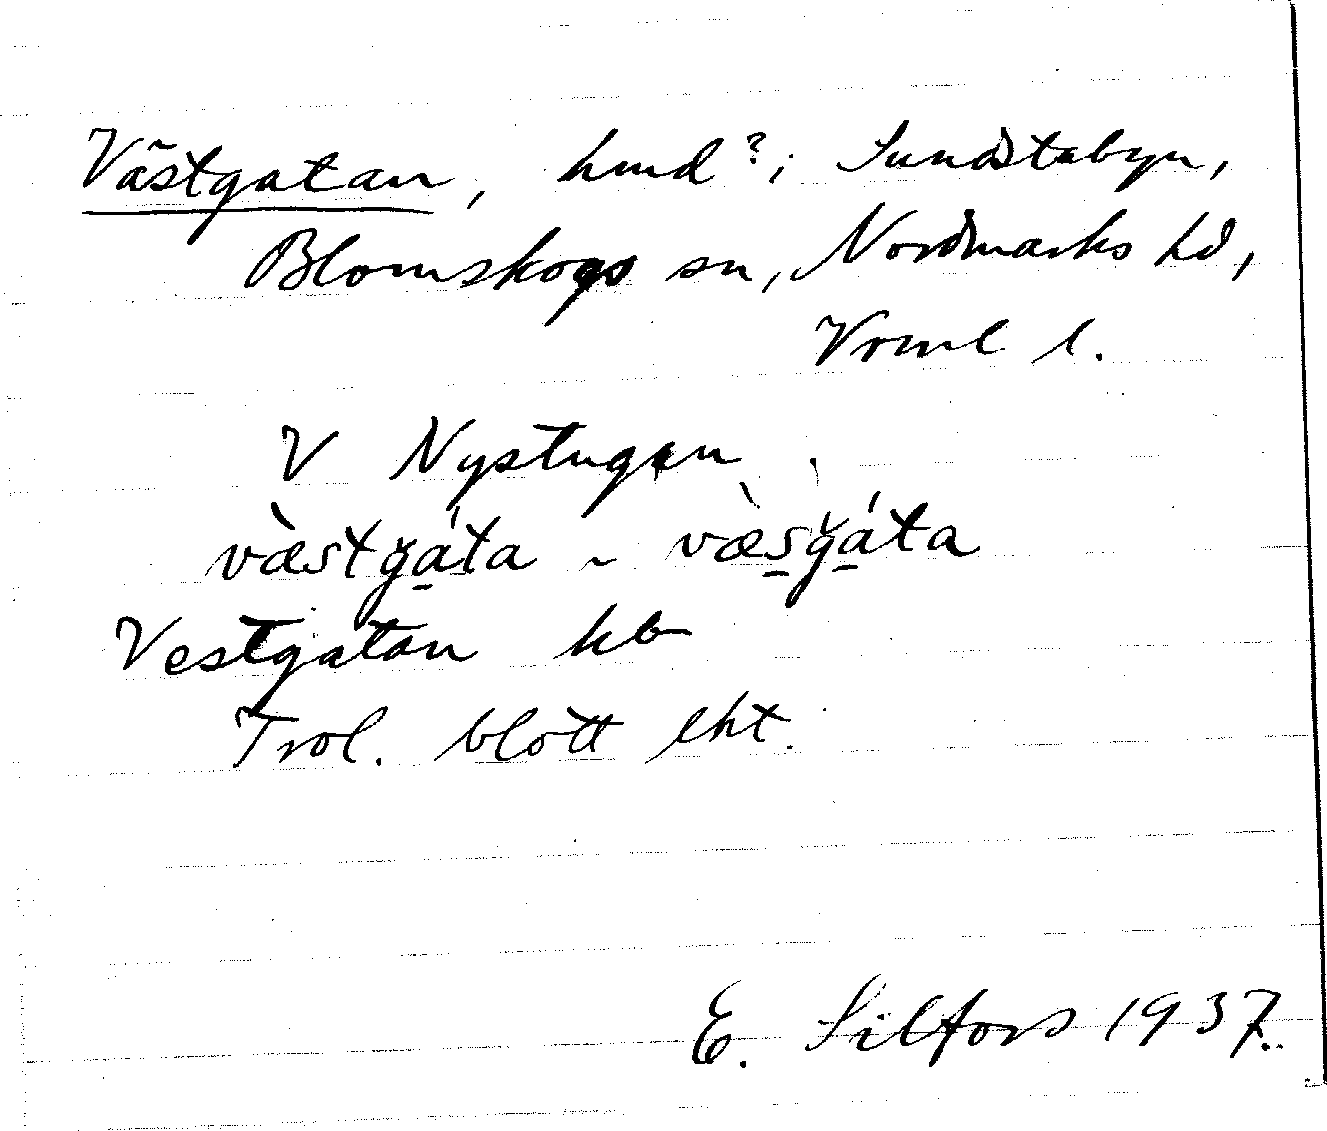 Västgatan, hmd? i Sundstabyn,
Blomskogs sn, Nordmarks hd,
Vrml l.
V Nystugan
væ̀stğá̱ta ~ væ̀s̱ğá̱ta
Vestgatan kb
Trol. blott eht.
E. Silfors 1937.